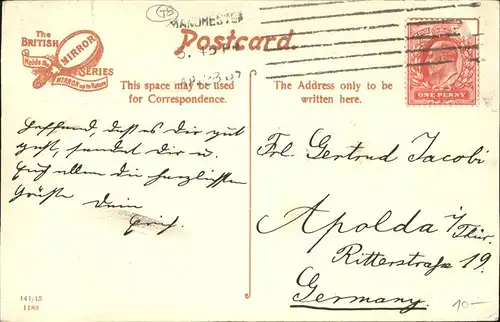 GB
MANCHESTER
AP 23 07
The
BRITISH
MIRROR
Holds the
MIRROR up to Nature
SERIES
Postcard.
This space may be used
for Correspondence.
The Address only to be
written here.
ONE PENNY
Hoffend, daß es Dir gut
geht, sendet Dir u.
Euch allen die herzlichsten
Grüße Dein
Erich.
Frl. Gertrud Jacobi
Apolda i/Thür.
Ritterstraße 19.
Germany.
141/15
1189
10-